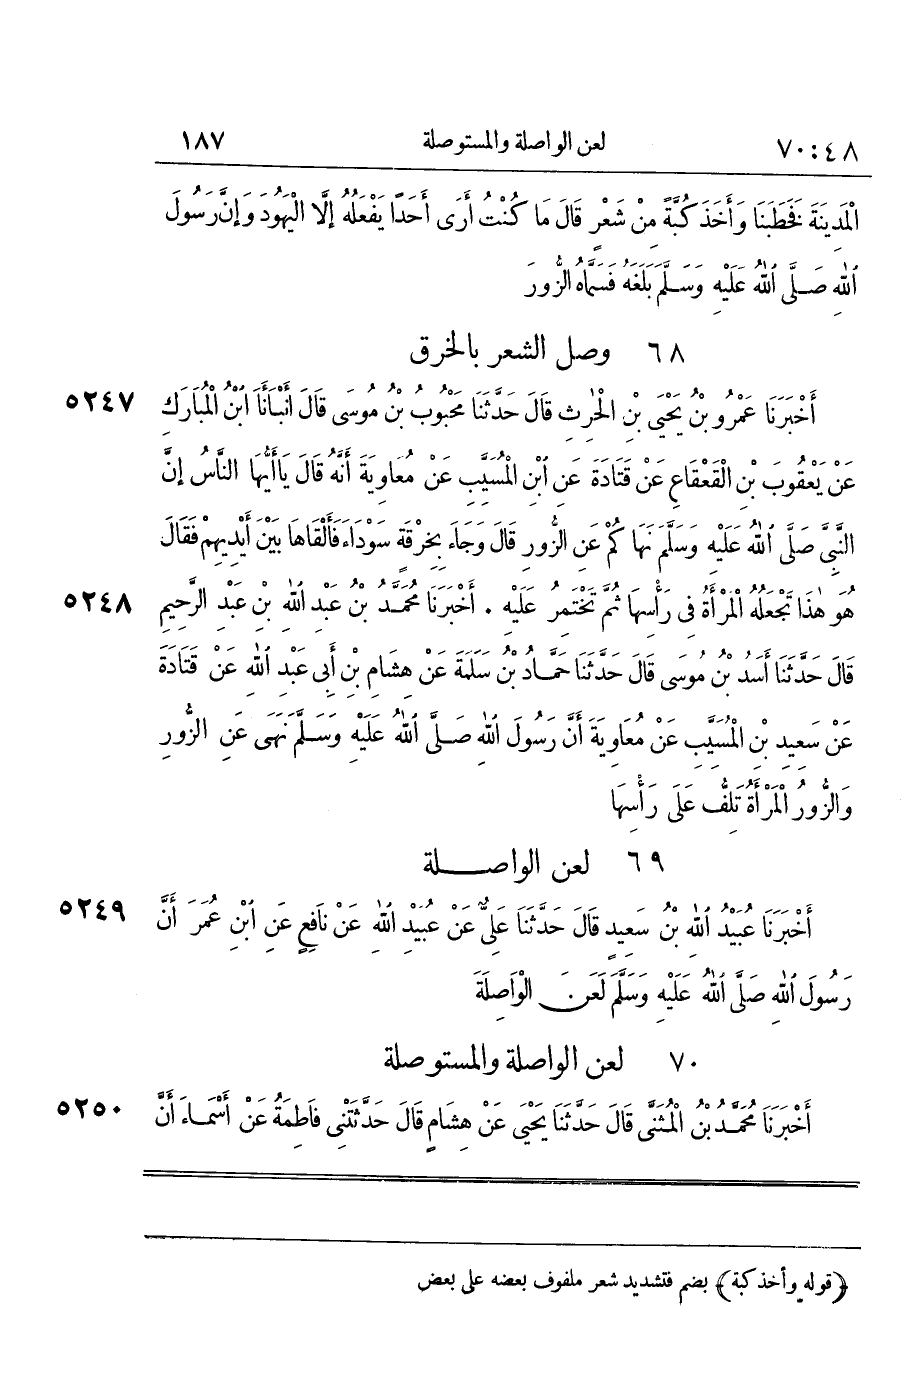 ٧٠:٤٨ لعن الواصلة والمستوصلة ١٨٧
الْمَدِينَةَ فَخَطَبَنَا وَأَخَذَ كُبَّةً مِنْ شَعْرٍ قَالَ مَا كُنْتُ أَرَى أَحَدًا يَفْعَلُهُ إِلَّا الْيَهُودَ وَإِنَّ رَسُولَ
اللهِ صَلَّى اللهُ عَلَيْهِ وَسَلَّمَ بَلَغَهُ فَسَمَّاهُ الزُّورَ
٦٨ وصل الشعر بالخرق
أَخْبَرَنَا عَمْرُو بْنُ يَحْيَى بْنِ الْحٰرِثِ قَالَ حَدَّثَنَا مَحْبُوبُ بْنُ مُوسَى قَالَ أَنْبَأَنَا ابْنُ الْمُبَارَكِ ٥٢٤٧
عَنْ يَعْقُوبَ بْنِ الْقَعْقَاعِ عَنْ قَتَادَةَ عَنِ ابْنِ الْمُسَيَّبِ عَنْ مُعَاوِيَةَ أَنَّهُ قَالَ يَا أَيُّهَا النَّاسُ إِنَّ
النَّبِيَّ صَلَّى اللهُ عَلَيْهِ وَسَلَّمَ نَهَاكُمْ عَنِ الزُّورِ قَالَ وَجَاءَ بِخِرْقَةٍ سَوْدَاءَ فَأَلْقَاهَا بَيْنَ أَيْدِيهِمْ فَقَالَ
هُوَ هٰذَا تَجْعَلُهُ الْمَرْأَةُ فِى رَأْسِهَا ثُمَّ تَخْتَمِرُ عَلَيْهِ . أَخْبَرَنَا مُحَمَّدُ بْنُ عَبْدِ اللهِ بْنِ عَبْدِ الرَّحِيمِ ٥٢٤٨
قَالَ حَدَّثَنَا أَسَدُ بْنُ مُوسَى قَالَ حَدَّثَنَا حَمَّادُ بْنُ سَلَمَةَ عَنْ هِشَامِ بْنِ أَبِى عَبْدِ اللهِ عَنْ قَتَادَةَ
عَنْ سَعِيدِ بْنِ الْمُسَيَّبِ عَنْ مُعَاوِيَةَ أَنَّ رَسُولَ اللهِ صَلَّى اللهُ عَلَيْهِ وَسَلَّمَ نَهَى عَنِ الزُّورِ
وَالزُّورُ الْمَرْأَةُ تَلُفُّ عَلَى رَأْسِهَا
٦٩ لعن الواصلة
أَخْبَرَنَا عُبَيْدُ اللهِ بْنُ سَعِيدٍ قَالَ حَدَّثَنَا عَلِىٌّ عَنْ عُبَيْدِ اللهِ عَنْ نَافِعٍ عَنِ ابْنِ عُمَرَ أَنَّ ٥٢٤٩
رَسُولَ اللهِ صَلَّى اللهُ عَلَيْهِ وَسَلَّمَ لَعَنَ الْوَاصِلَةَ
٧٠ لعن الواصلة والمستوصلة
أَخْبَرَنَا مُحَمَّدُ بْنُ الْمُثَنَّى قَالَ حَدَّثَنَا يَحْيَى عَنْ هِشَامٍ قَالَ حَدَّثَتْنِى فَاطِمَةُ عَنْ أَسْمَاءَ أَنَّ ٥٢٥٠
﴿قوله وأخذ كبة﴾ بضم فتشديد شعر ملفوف بعضه على بعض